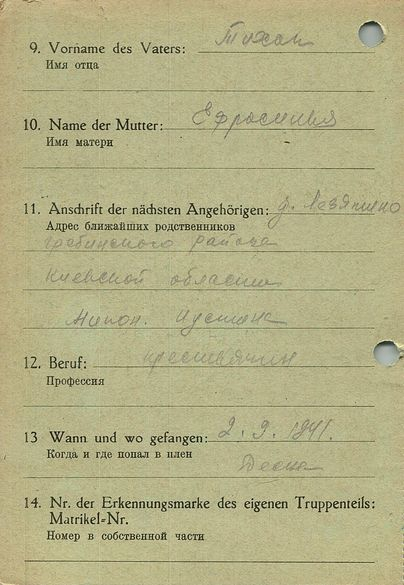 9. Vorname des Vaters: Тихон
Имя отца
10. Name der Mutter: Ефросинья
Имя матери
11. Anschrift der nächsten Angehörigen: д.
Адрес ближайших родственников
района
Киевской области
12. Beruf: крестьянин
Профессия
13 Wann und wo gefangen: 2. 9. 1941.
Когда и где попал в плен
Десна
14. Nr. der Erkennungsmarke des eigenen Truppenteils:
Matrikel-Nr.
Номер в собственной части